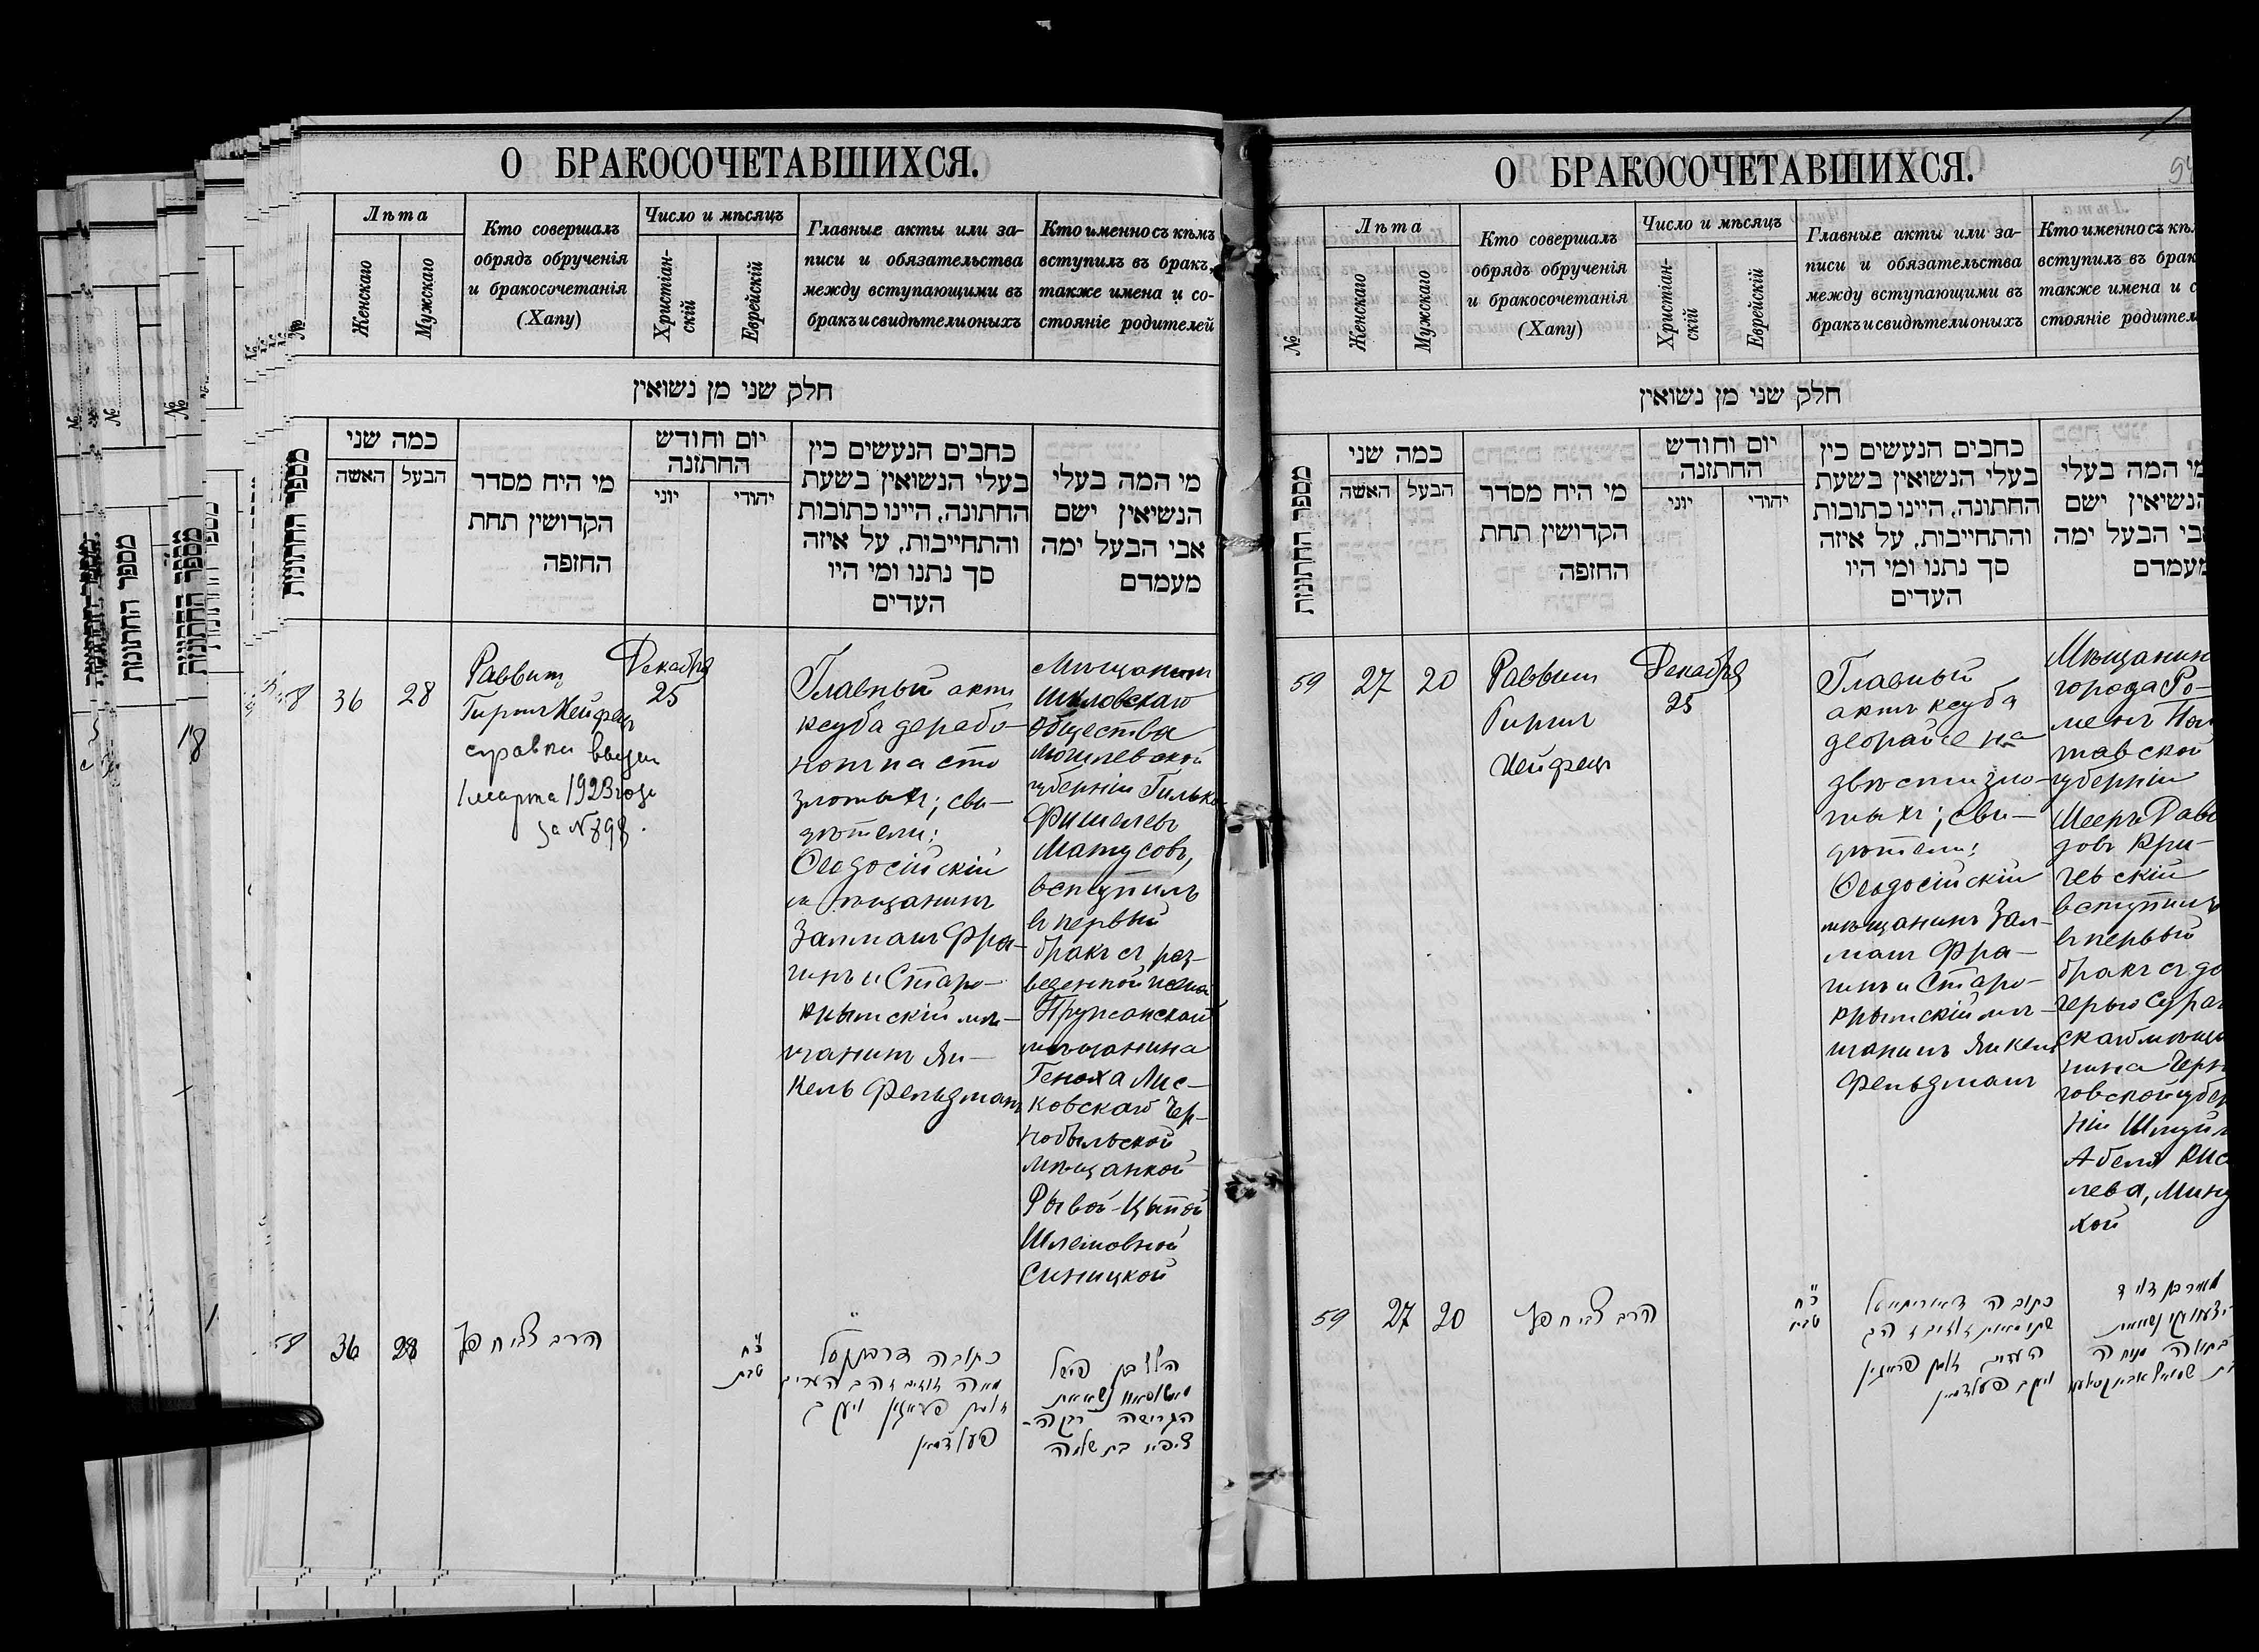 О БРАКОСОЧЕТАВШИХСЯ.
№
Лѣта
Женскаго
Мужскаго
Кто совершалъ
обрядъ обрученія
и бракосочетанія
(Хапу)
Число и мѣсяцъ
Христіан-
скій
Еврейскій
Главные акты или за-
писи и обязательства
между вступающими въ
бракъ и свидѣтели оныхъ
Кто именно съ кѣмъ
вступилъ въ бракъ,
также имена и со-
стояніе родителей
חלק שני מן נשואין
מספר החתונות
כמה שני
האשה
הבעל
מי היח מסדר
הקדושין תחת
החזפה
יום וחודש
החתזנה
יוני
יהודי
כחבים הנעשים כין
בעלי הנשואין בשעת
החתונה, היינו כתובות
והתחייבות, על איזה
סך נתנו ומי היו
העדים
מי המה בעלי
הנשיאין ישם
אבי הבעל ימה
מעמדם
58
36
28
Раввин
Гирш Хейфец
справки выдан
1 марта 1923 года
за №898.
Декабря
25
Главный актъ
ксуба дерабо-
нонъ на сто
злотыхъ; сви-
дѣтели:
Ѳеодосійскій
мѣщанинъ
Залманъ Фра-
гинъ и Старо-
крымскій мѣ-
щанинъ Ян-
кель Фельдманъ
Мѣщанинъ
Шкловскаго
общества
Могилевской
губерніи Гилько
Фишелевъ
Матусовъ,
вступилъ
въ первый
бракъ съ раз-
веденной женой
Пружанскаго
мѣщанина
Геноха Лис-
ковскаго Чер-
нобыльской
мѣщанкой
Рывой-Цыпой
Шлемовной
Синицкой
58
36
28
הרב צבי חפץ
כ״ח
טבת
כתובה דרבנן על
מאה זהב העדים
זלמן פראגין ויעקב
פעלדמאן
הלל בן פישל
מאטוסאוו נשא את
הגרושה רבקה-
ציפא בת שלמה
О БРАКОСОЧЕТАВШИХСЯ.
№
Лѣта
Женскаго
Мужскаго
Кто совершалъ
обрядъ обрученія
и бракосочетанія
(Хапу)
Число и мѣсяцъ
Христіан-
скій
Еврейскій
Главные акты или за-
писи и обязательства
между вступающими въ
бракъ и свидѣтели оныхъ
Кто именно съ кѣм
вступилъ въ брак
также имена и с
стояніе родител
חלק שני מן נשואין
מספר החתונות
כמה שני
האשה
הבעל
מי היח מסדר
הקדושין תחת
החזפה
יום וחודש
החתזנה
יוני
יהודי
כחבים הנעשים כין
בעלי הנשואין בשעת
החתונה, היינו כתובות
והתחייבות, על איזה
סך נתנו ומי היו
העדים
מי המה בעלי
הנשיאין ישם
אבי הבעל ימה
מעמדם
59
27
20
Раввин
Гирш
Хейфец
Декабря
25
Главный
актъ ксуба
деорайсе на
двѣсти зло-
тыхъ; сви-
дѣтели:
Ѳеодосійскій
мѣщанинъ Зал-
манъ Фра-
гинъ и Старо-
крымскій мѣ-
щанинъ Янкель
Фельдманъ
Мѣщанин
города Ро-
менъ Пол
тавской
губерніи
Мееръ Давы
довъ Кри-
чевскій
вступилъ
въ первый
бракъ съ до
черью Сураж
скаго мѣща
нина Черни
говской губер
ніи Шмуйл
Абеля Кис
лева, Мину
хой
59
27
20
הרב צבי חפץ
כ״ח
טבת
כתובה דאורייתא על
העדים זלמן פראגין
ויעקב פעלדמאן
מאיר בן דוד
נשא את
בתולה מנוחה